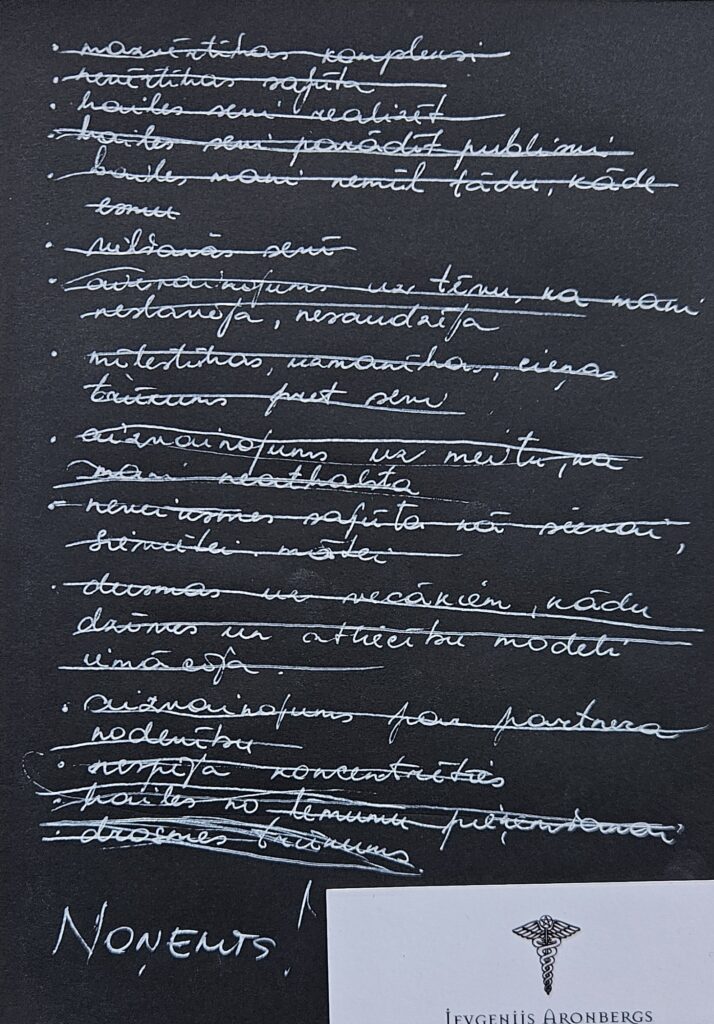 · mazvērtības kompleksi
· nevērtības sajūta
· bailes sevi realizēt
· bailes sevi parādīt publiski
· bailes, mani nemīl tādu, kāda
esmu
· vilšanās sevī
· aizvainojums uz tēvu, ka mani
nestāvēja, nesaudzēja
· mīlestības, uzmanības, cieņas
trūkums pret sevi
· aizvainojums uz meitu, ka
mani neatbalsta
- neveiksmes sajūta kā sievai,
sievietei. mātei
· dusmas uz vecākiem, kādu
dzīves un attiecību modeli
iemācīja.
· aizvainojums par partnera
nodevību
· nespēja koncentrēties
· bailes no lēmumu pieņemšanai
· drosmes trūkums
NOŅEMTS!
JEVGENIJS ARONBERGS